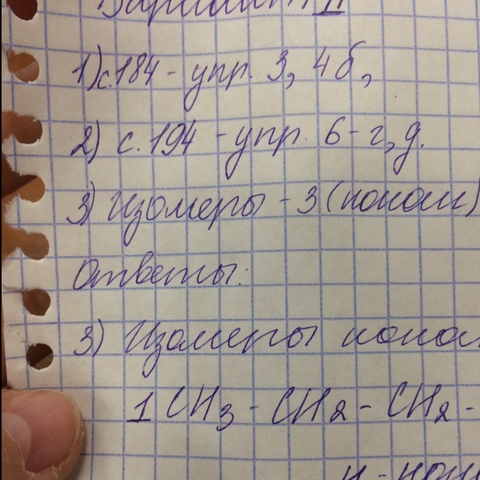 Вариант II
1) с.184 - упр. 3, 4б,
2) с.194 - упр. 6-г,д.
3) Изомеры - 3 (нонан)
Ответы:
3) Изомеры нонан
1 CH3 - CH2 - CH2 -
н-нон